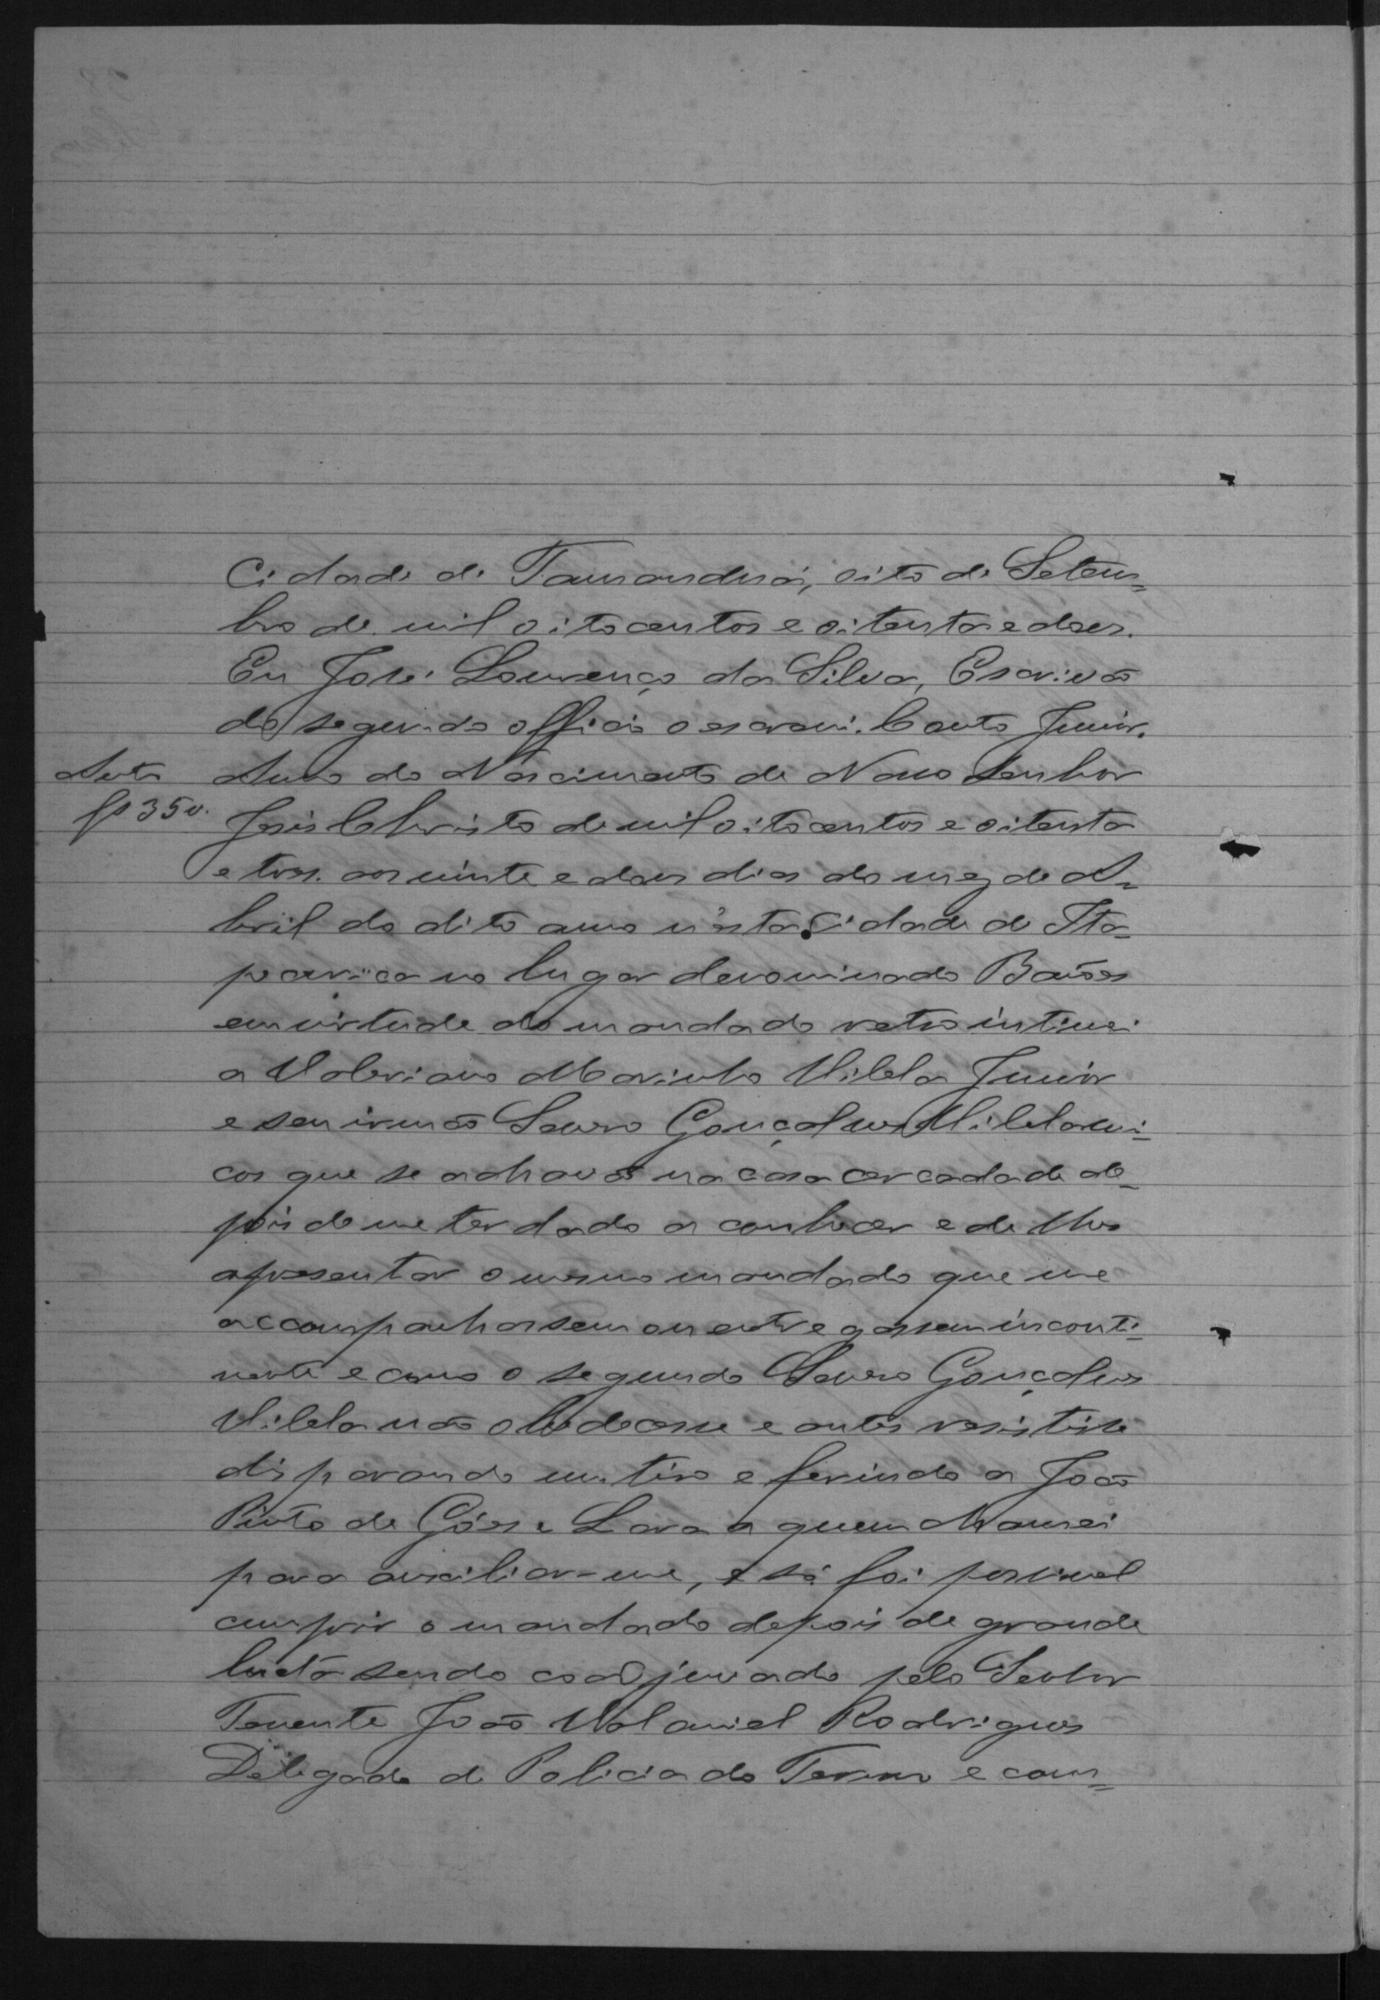 Cidade de Tamanduá, oito de Setem-
bro de mil oitocentos e oitenta e dous.
Eu José Lourenço da Silva, Escrivão
do segundo officio o escrevi. Couto Junior.
Auto
fs 35 v.
Anno do Nascimento de Nosso Senhor
Jesus Christo de mil oitocentos e oitenta
e tres. aos vinte e dous dias do mez de A-
bril do dito anno n'esta Cidade de Ita-
pecerica no lugar denominado Baiões
em virtude do mandado retro intimei
a Valeriano Marinho Vilela Junior
e seu irmão Lauro Gonçalves Vilela uni-
cos que se achavão na casa cercada de de-
pois de me ter dado a conhecer e de lhes
apresentar o mesmo mandado que me
accompanhassem ou entregassem inconti-
nente e como o segundo Lauro Gonçalves
Vilela não obedecesse e antes resistisse
disparando um tiro e ferindo a João
Pinto de Góes e Lara a quem chamei
para auxiliar-me, e só foi possivel
cumprir o mandado depois de grande
lucta sendo coadjuvado pelo Senhor
Tenente João Malaniel Rodrigues
Delegado de Policia do Termo e com-